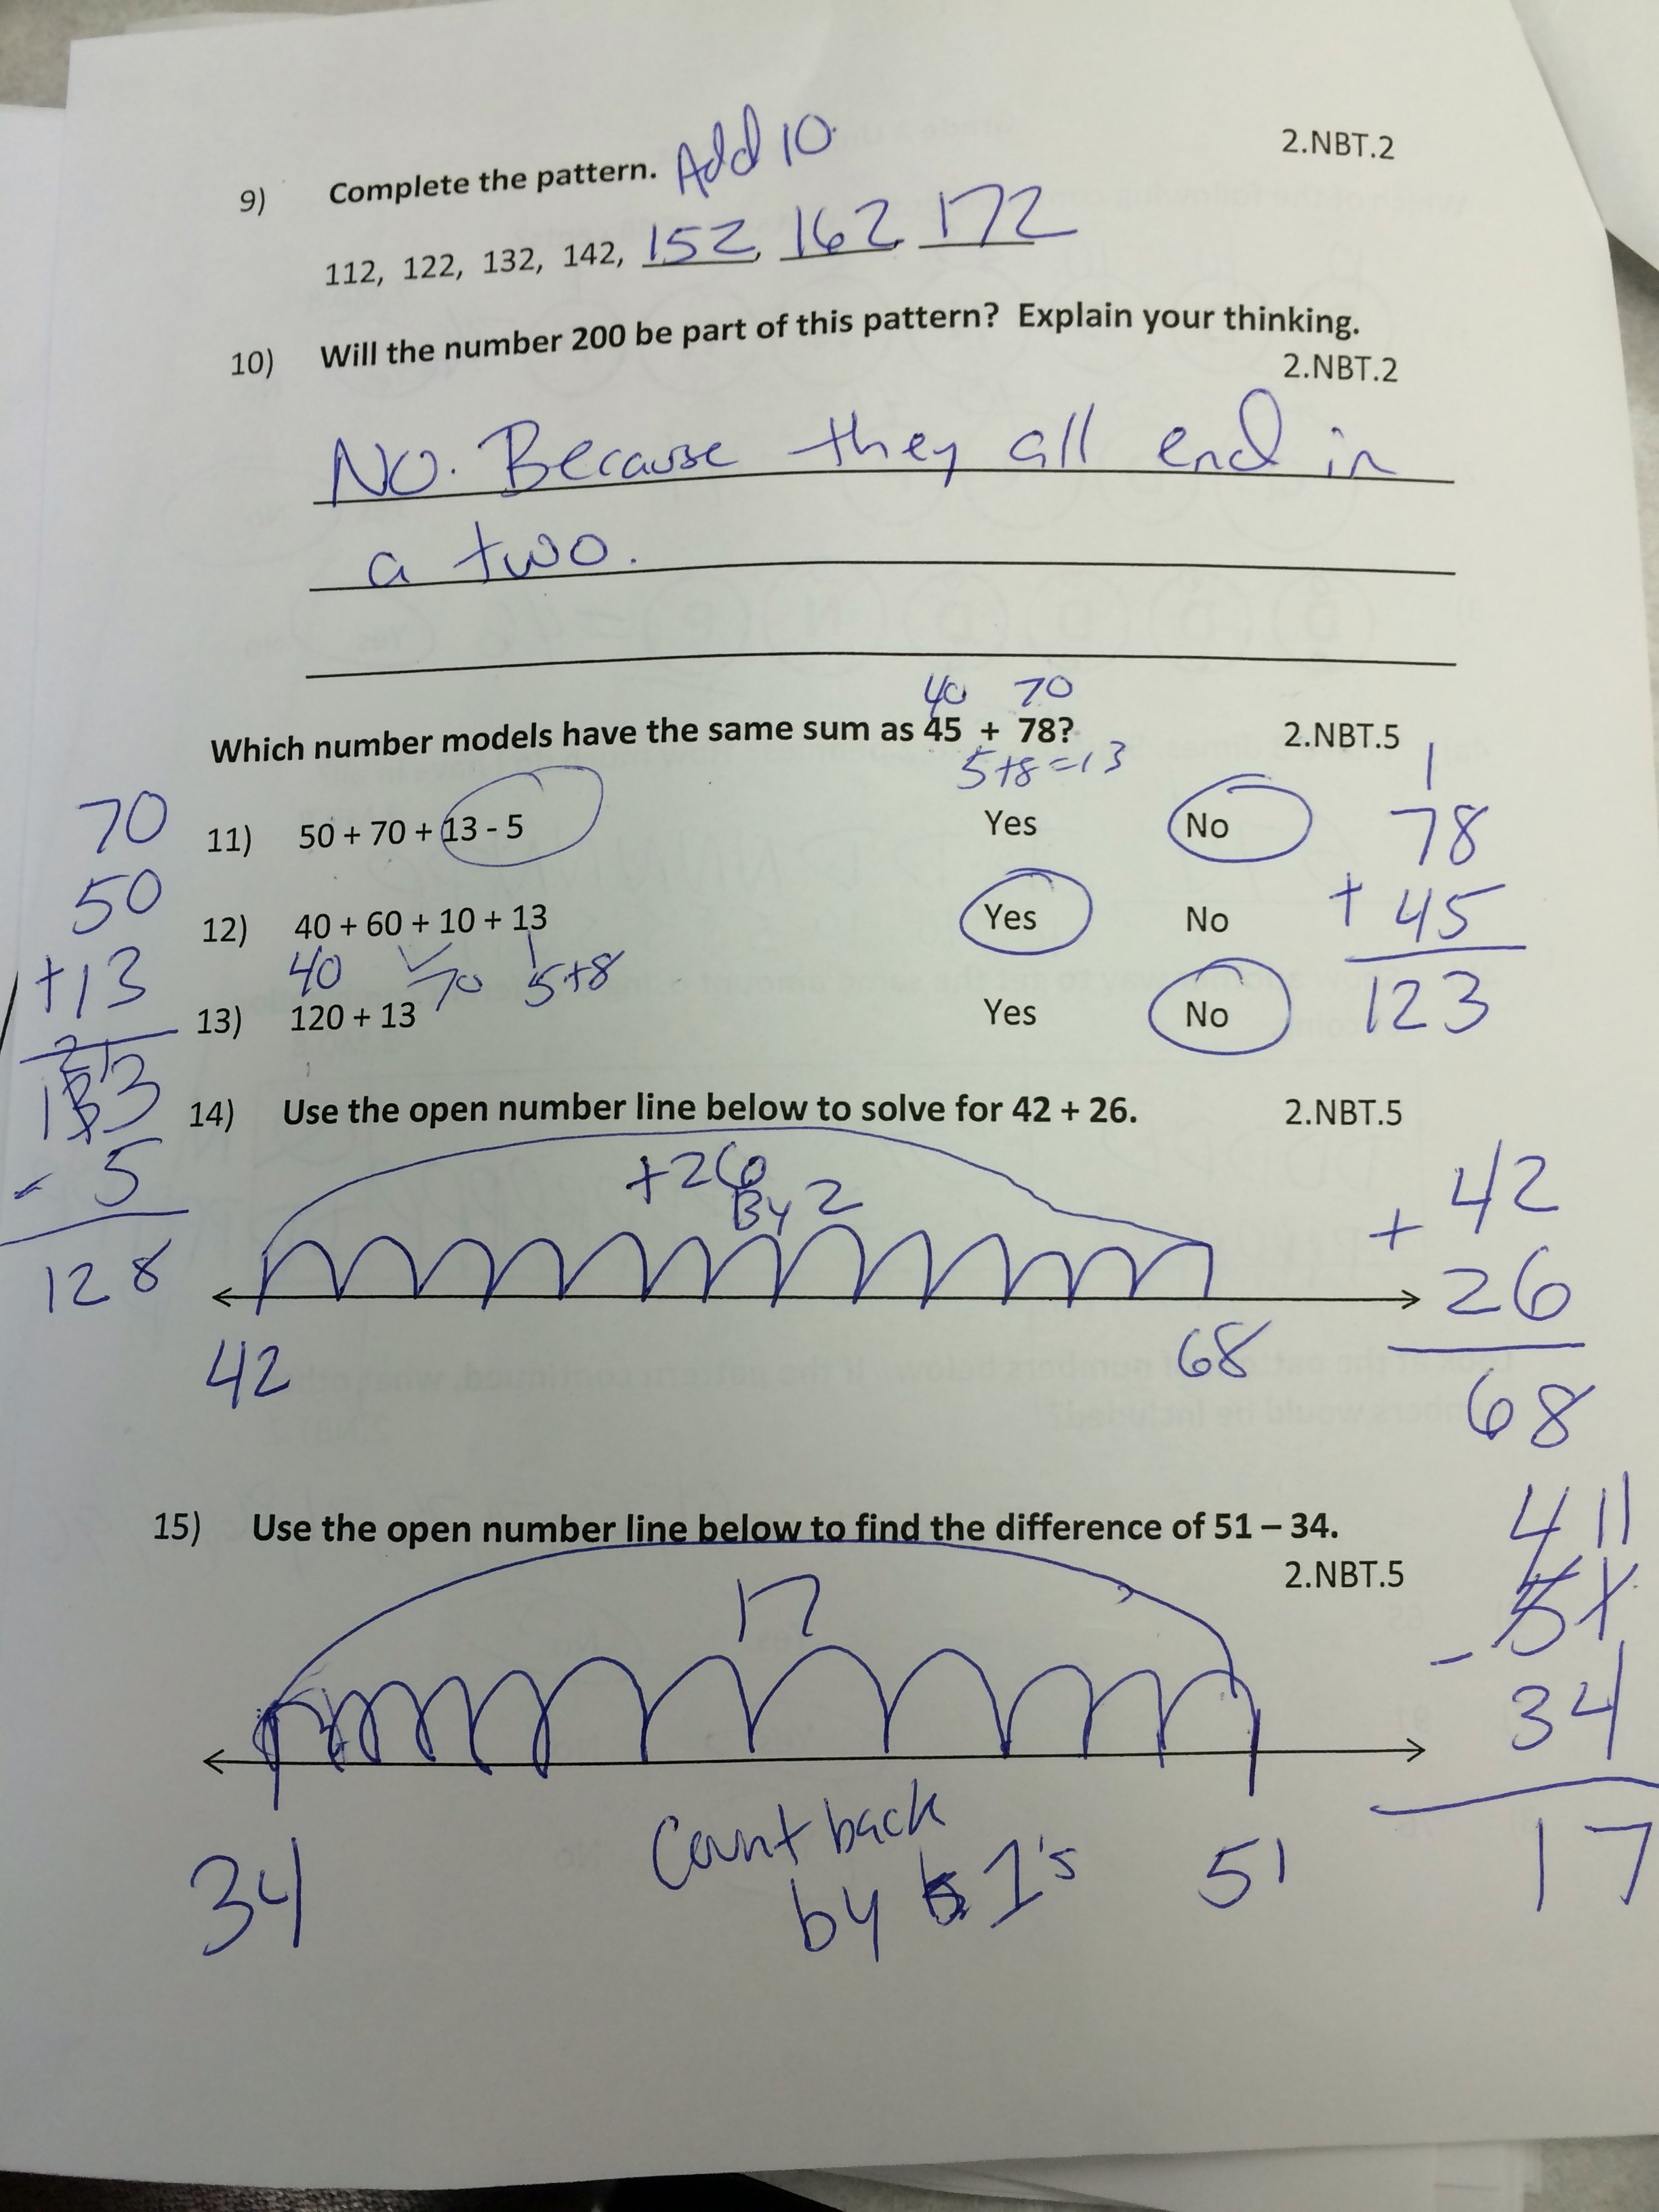 Add 10
2.NBT.2
9) Complete the pattern.
112, 122, 132, 142, 152, 162, 172
10) Will the number 200 be part of this pattern? Explain your thinking.
2.NBT.2
No. Because they all end in
a two.
40 70
Which number models have the same sum as 45 + 78? 2.NBT.5
5+8=13
11) 50 + 70 + 13 - 5 Yes No
12) 40 + 60 + 10 + 13 Yes No
40 70 5+8
13) 120 + 13 Yes No
70
50
+13
21
133
- 5
128
1
78
+ 45
123
14) Use the open number line below to solve for 42 + 26. 2.NBT.5
+26
By 2
42 68
42
+ 26
68
15) Use the open number line below to find the difference of 51 – 34.
2.NBT.5
17
34 51
Count back
by 1's
4 11
51
- 34
17